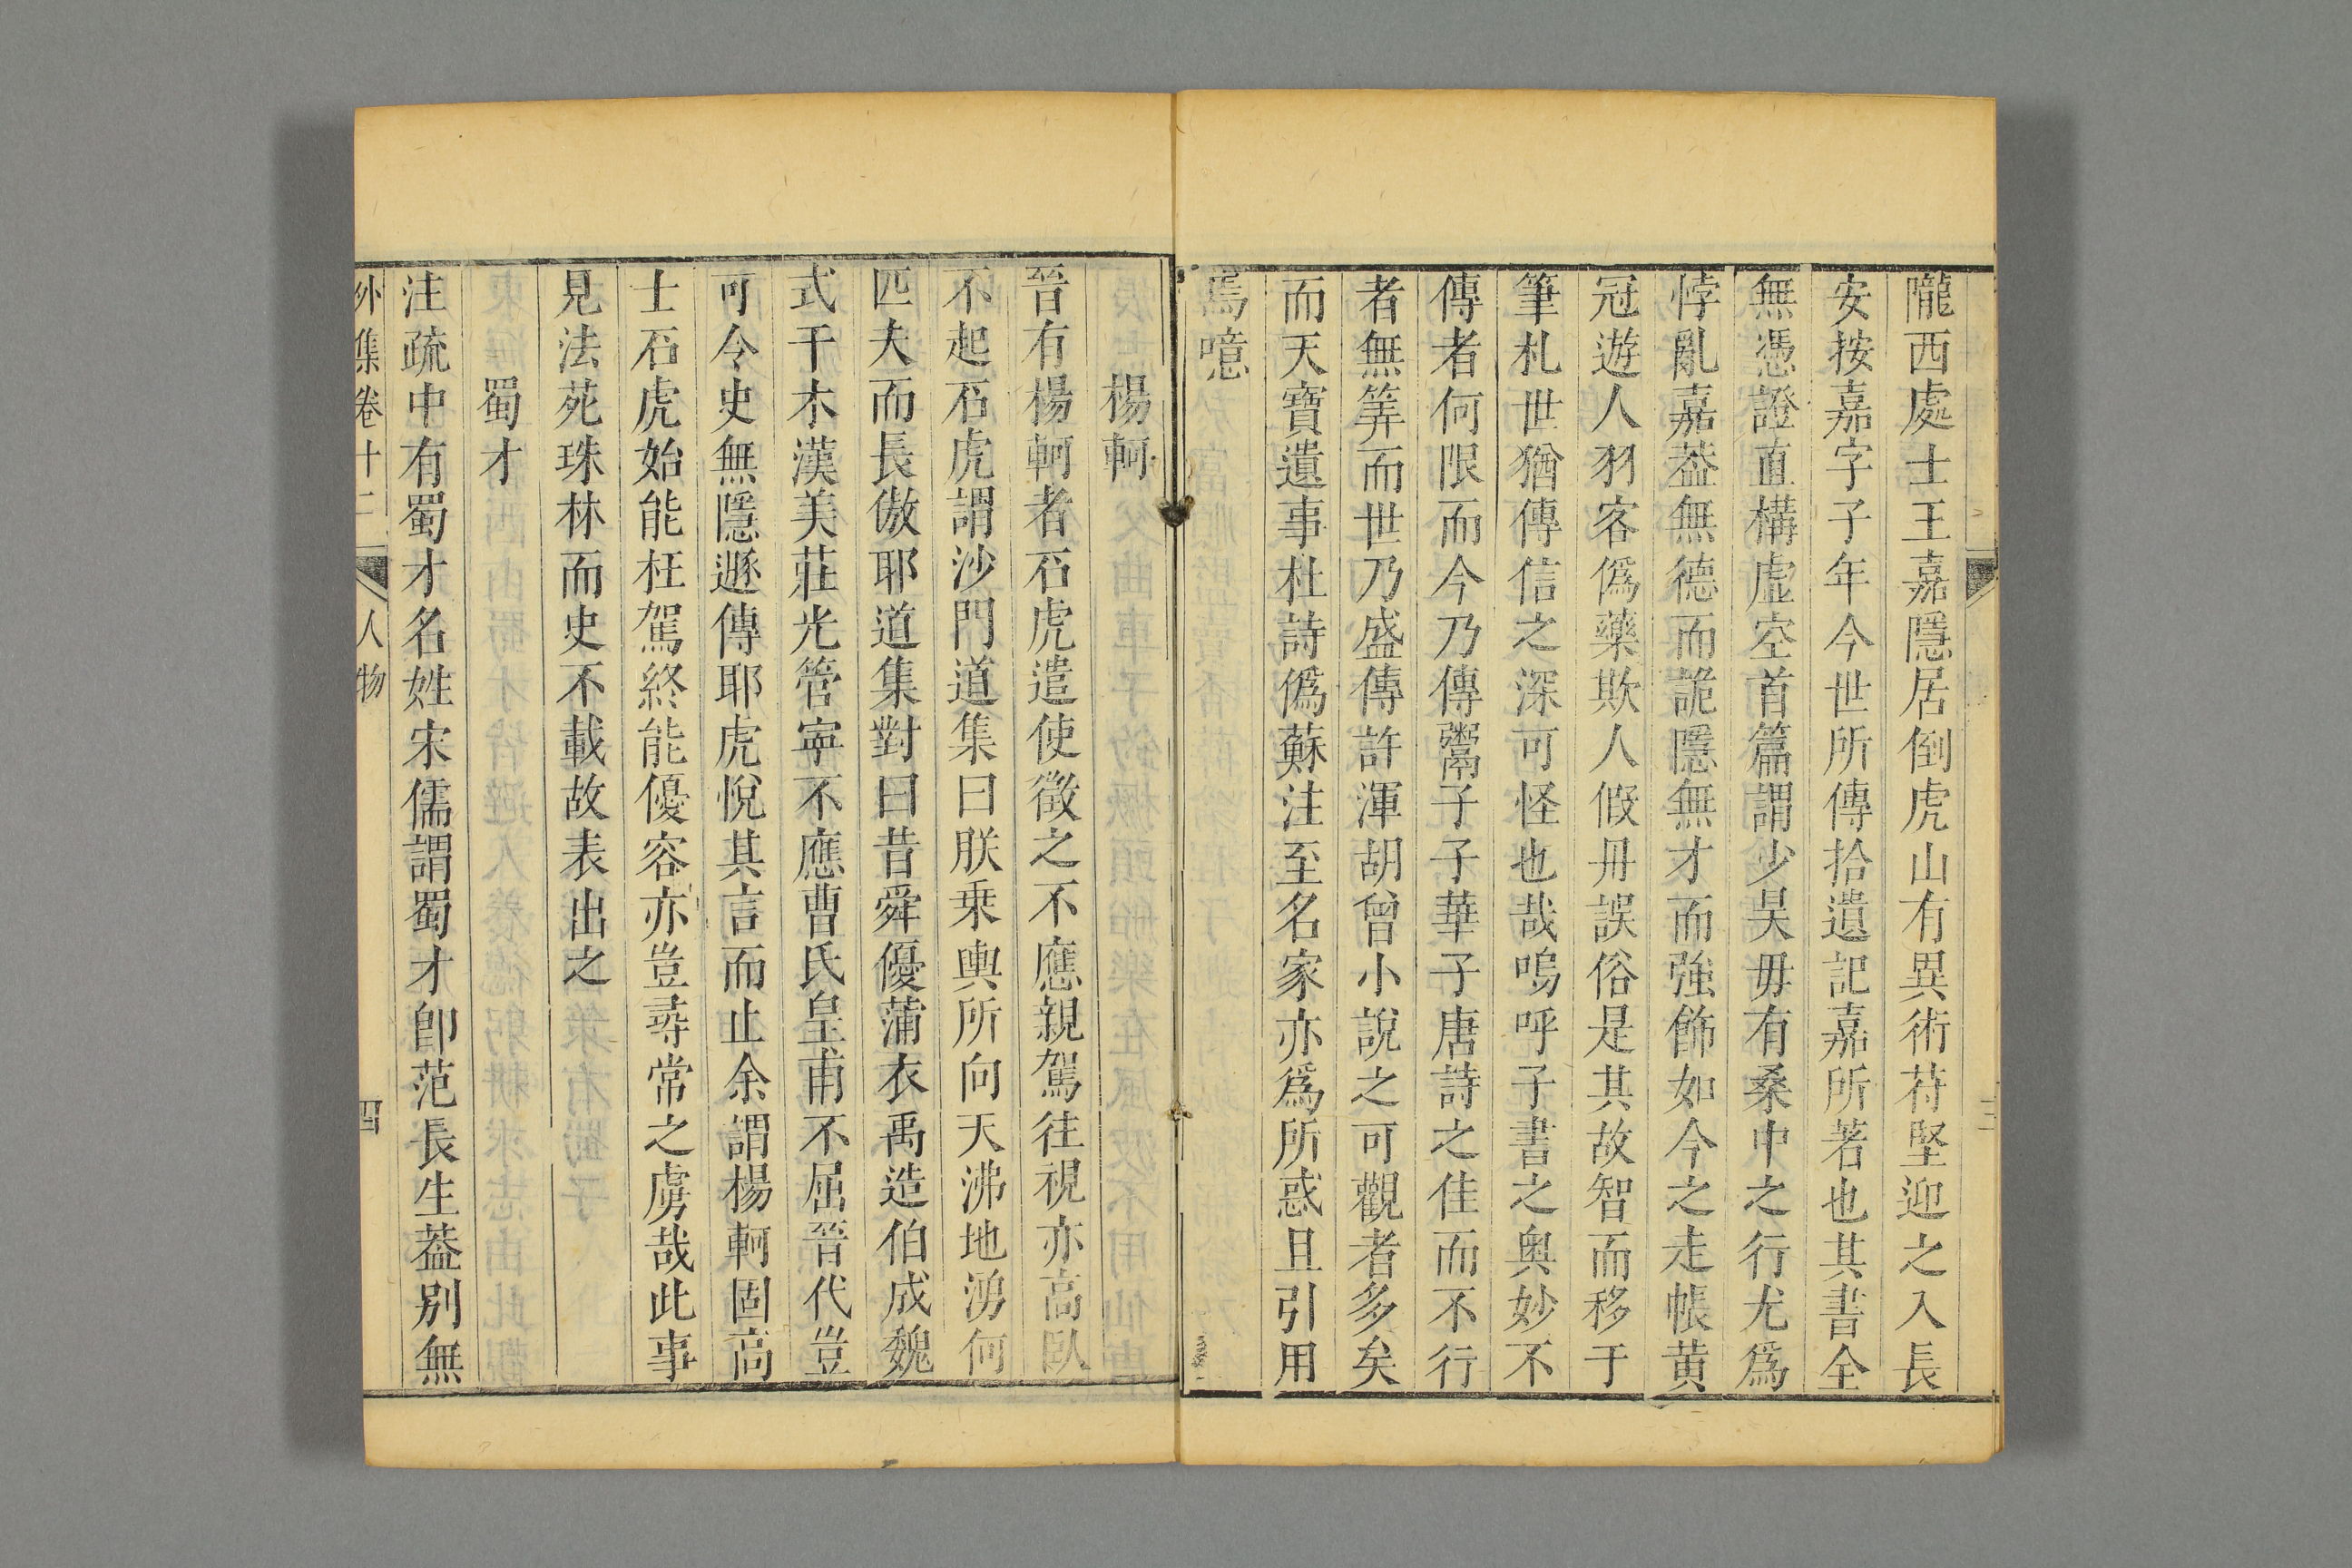 隴西處士王嘉隱居倒虎山有異術苻堅迎之入長
安按嘉字子年今世所傳拾遺記嘉所著也其書全
無憑證直構虛空首篇謂少昊毋有桑中之行尤爲
悖亂嘉葢無德而詭隱無才而強飾如今之走帳黄
冠遊人羽客僞藥欺人假丹誤俗是其故智而移于
筆札世猶傳信之深可怪也哉嗚呼子書之奥妙不
傳者何限而今乃傳鬻子子華子唐詩之佳而不行
者無筭而世乃盛傳許渾胡曾小說之可觀者多矣
而天寶遺事杜詩僞蘇注至名家亦爲所惑且引用
焉噫
楊軻
晉有楊軻者石虎遣使徵之不應親駕往視亦高臥
不起石虎謂沙門道集曰朕乗輿所向天沸地湧何
匹夫而長傲耶道集對曰昔舜優蒲衣禹造伯成魏
式干木漢美莊光管寧不應曹氏皇甫不屈晉代豈
可令史無隱遯傳耶虎悅其言而止余謂楊軻固高
士石虎始能枉駕終能優容亦豈尋常之虜哉此事
見法苑珠林而史不載故表出之
蜀才
注疏中有蜀才名姓宋儒謂蜀才卽范長生葢别無
外集卷十二 人物 四